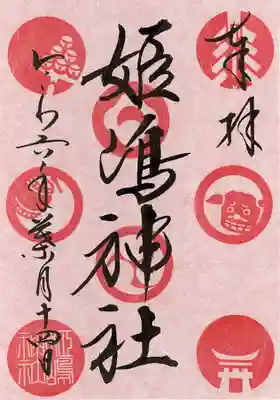 奉拝
姫嶋神社
令和六年葉月十四日
姫嶋神社